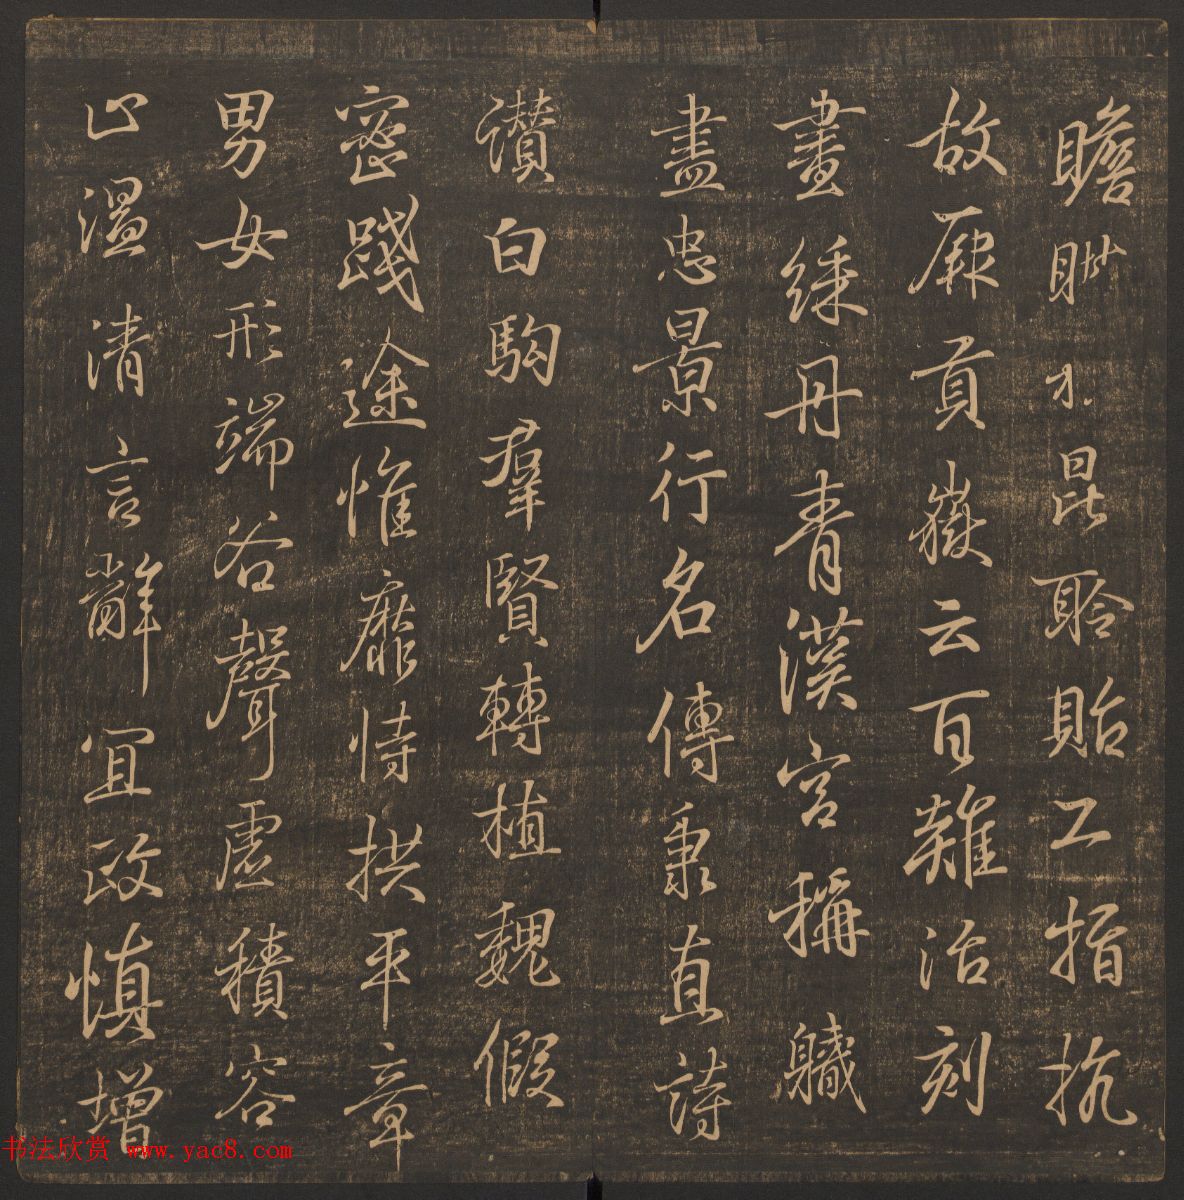 瞻眺昆聆貽工指抗
故厥貢嶽云百難治刻
畫綵丹青漢宮稱職
盡忠景行名傳秉直詩
讚白駒羣賢轉植魏假
密踐途惟靡恃拱平章
男女形端谷聲虛積容
止溫清言辭宜政慎增
书法欣赏 www.yac8.com